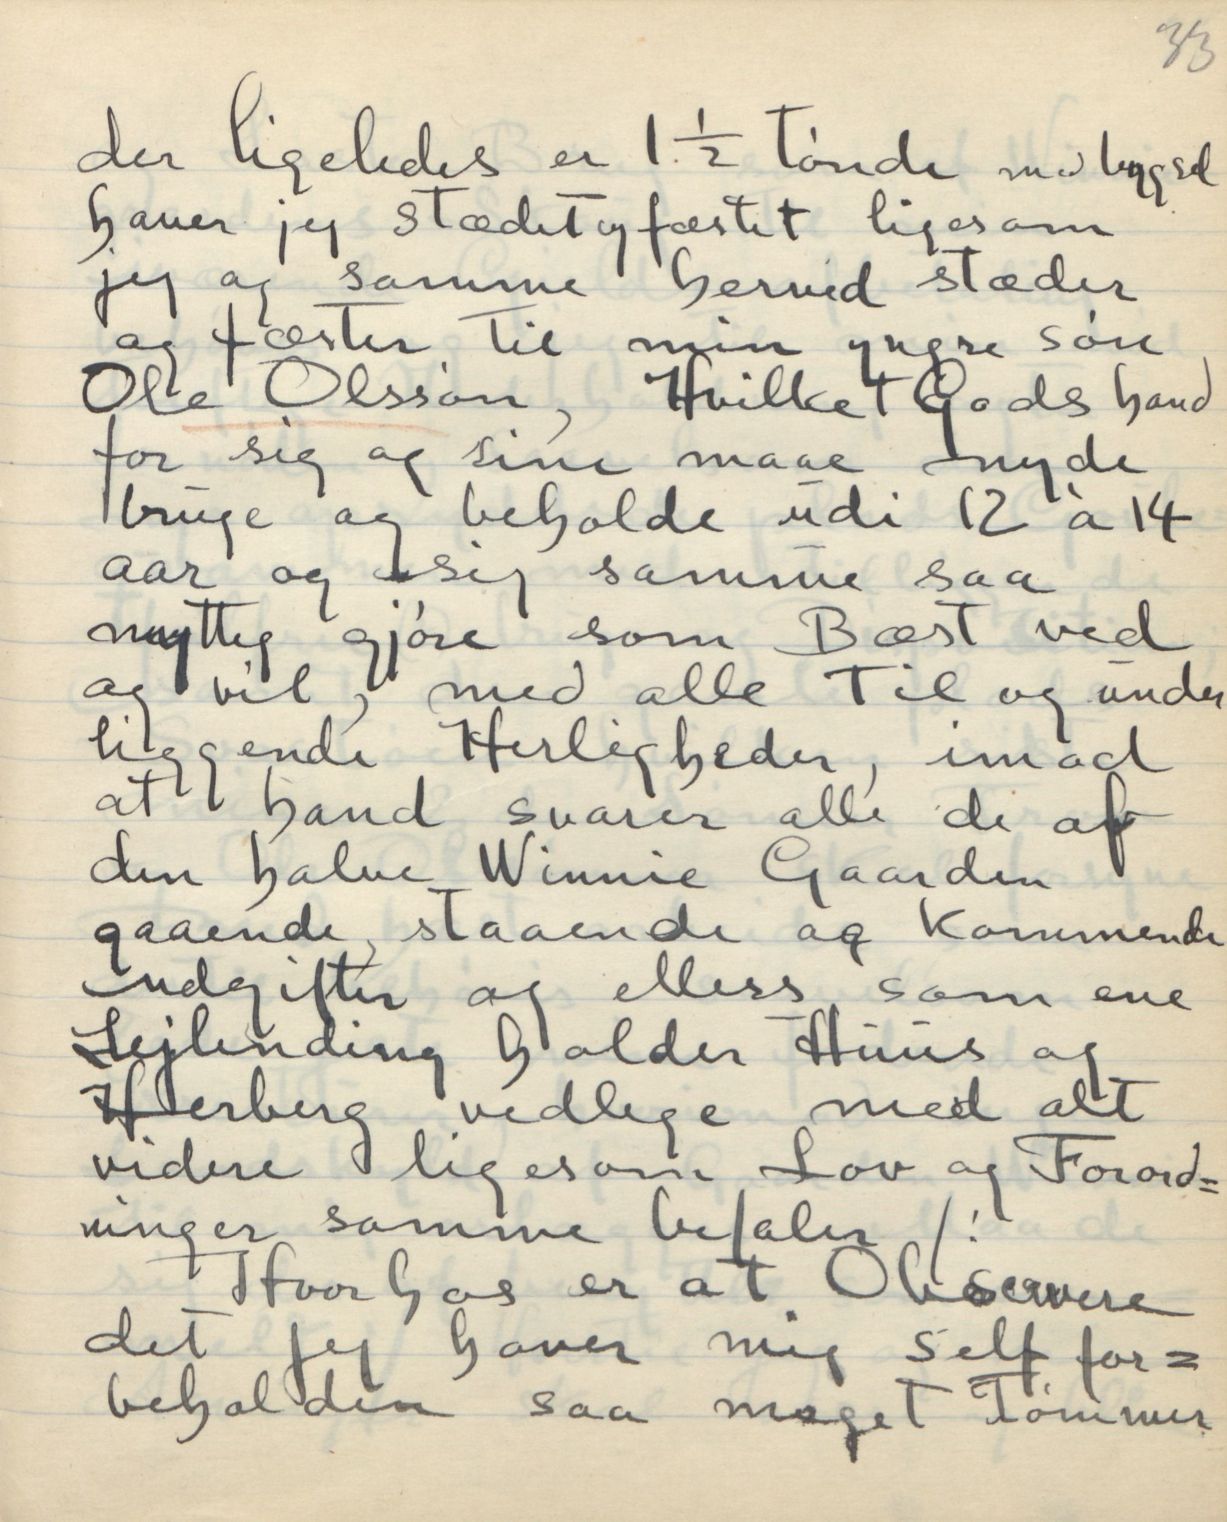 33
der ligeledes er 1 1/2 Tónde med bygsel
haver jeg stædet og fæstet ligesom
jeg og samme herved stæder
og fæster til min yngre sóne
Ole Olssón, Hvilket Gods hand
for sig og sine maae nyde
brúge og beholde údi 12 à 14
aar og sig samme saa
nyttig gjóre som Bæst ved
og vil, med alle Til og únder
liggende Herligheder, imod
at hand svarer alle de af
den halve Winnie Gaarden
gaaende, staaende og Kommende
údgifter og elless som ene
Lejlending holder Húús og
Herberg vedlige med alt
videre ligesom Lov og Forord=
ninger samme befaler /:
Hvorhos er at Observere
det jeg haver mig self for=
beholden saa meget Tómmer